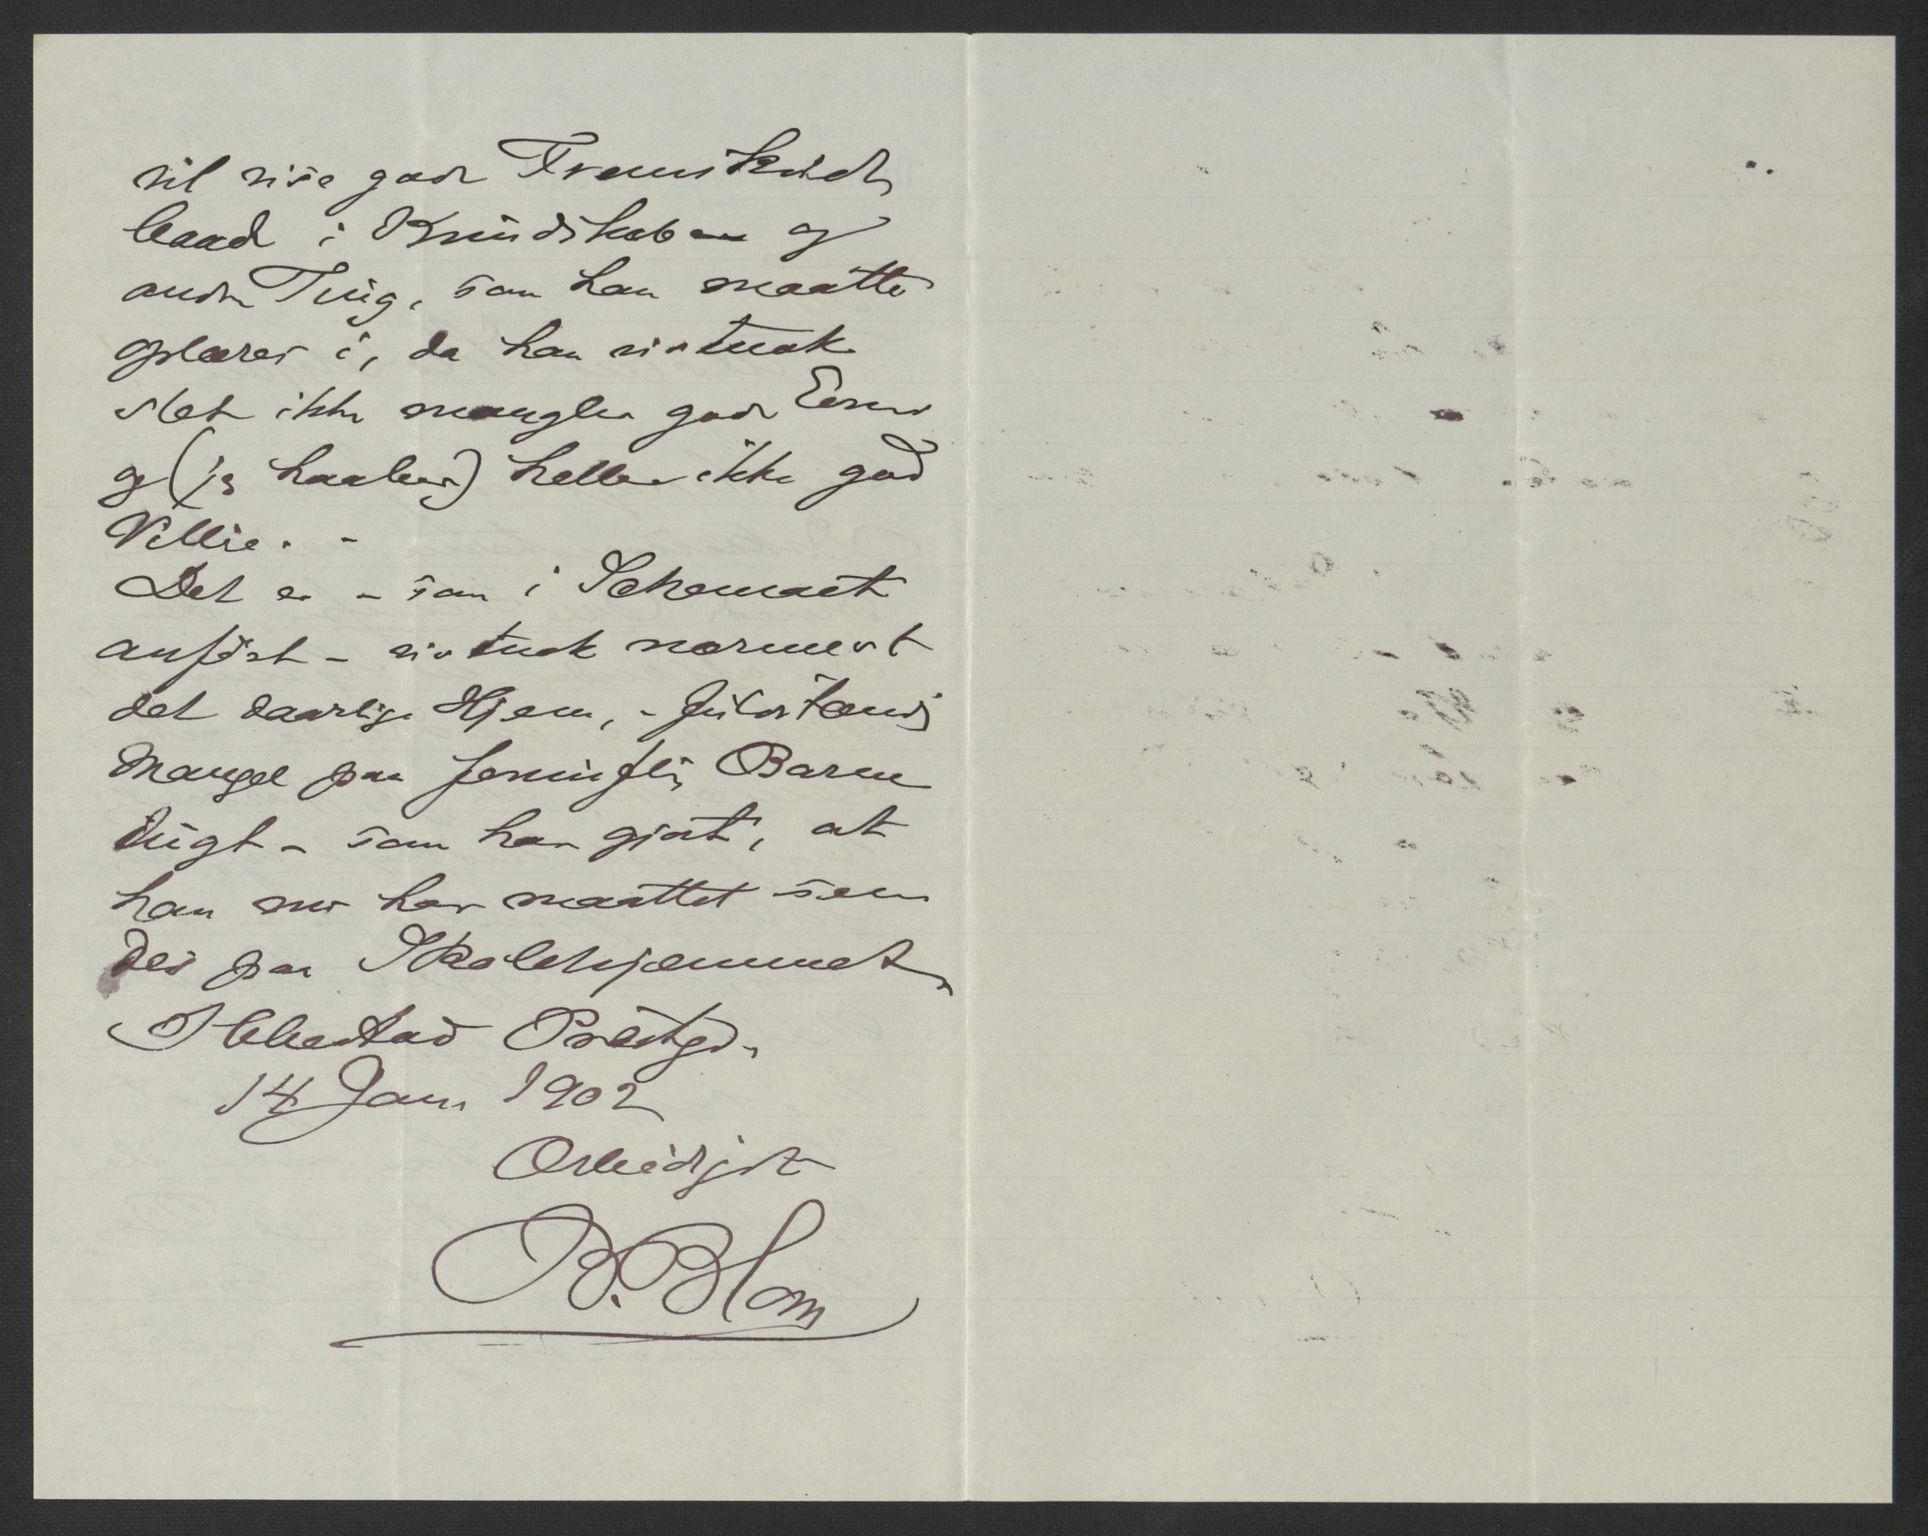 vil vise gode Fremskridt,
baade i Kundskaber og
andre Ting, som han maatte
oplæres i, da han vistnok
slet ikke mangler gode Evner
og (jeg haaber) heller ikke god
Villie. -
Det er - som i Schemaet
anført - vistnok nærmest
det daarlige Hjem, - fuldstændig
Mangel paa fornuftig Barne
tugt - som har gjort, at
han nu har maattet sen
des paa Skolehjemmet,
Præstgd.
14 Jan. 1902
Ærbødigst
B. Blom